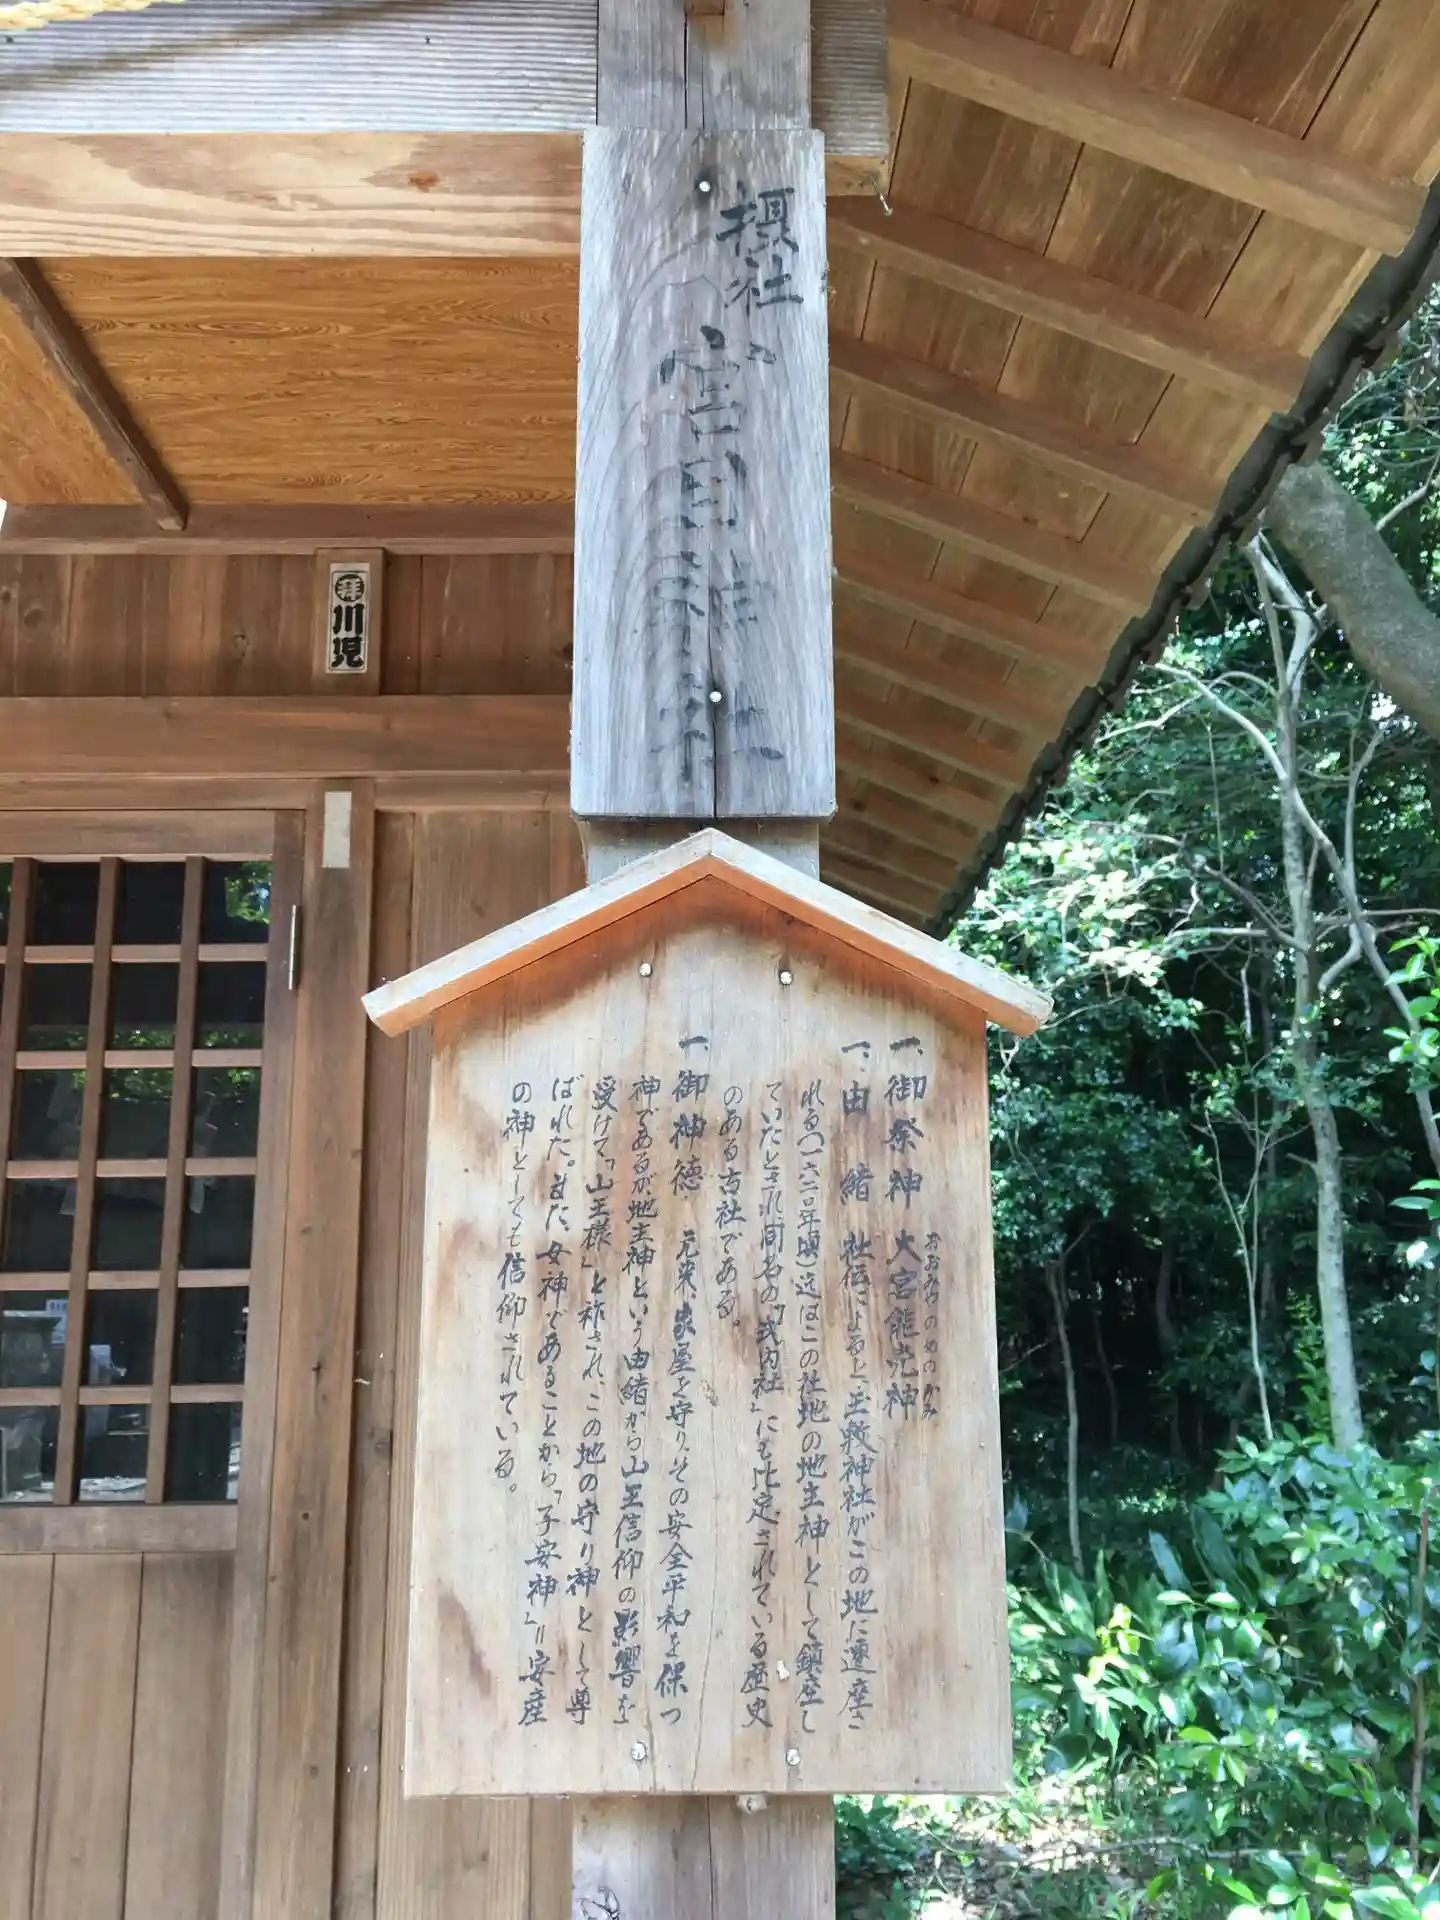 摂社
宮目神社
拝
川児
一、御祭神 大宮能売神
おおみやのめのかみ
一、由緒 社伝によると、主敷神社がこの地に遷座さ
れる(一六二〇年頃)迄はこの社地の地主神として鎮座し
ていたとされ、同名の「式内社」にも比定されている歴史
のある古社である。
一、御神徳 元来、家屋を守り、その安全平和を保つ
神であるが、地主神という由緒から山王信仰の影響を
受けて「山王様」と称され、この地の守り神として尊
ばれた。また、女神であることから「子安神」=安産
の神としても信仰されている。